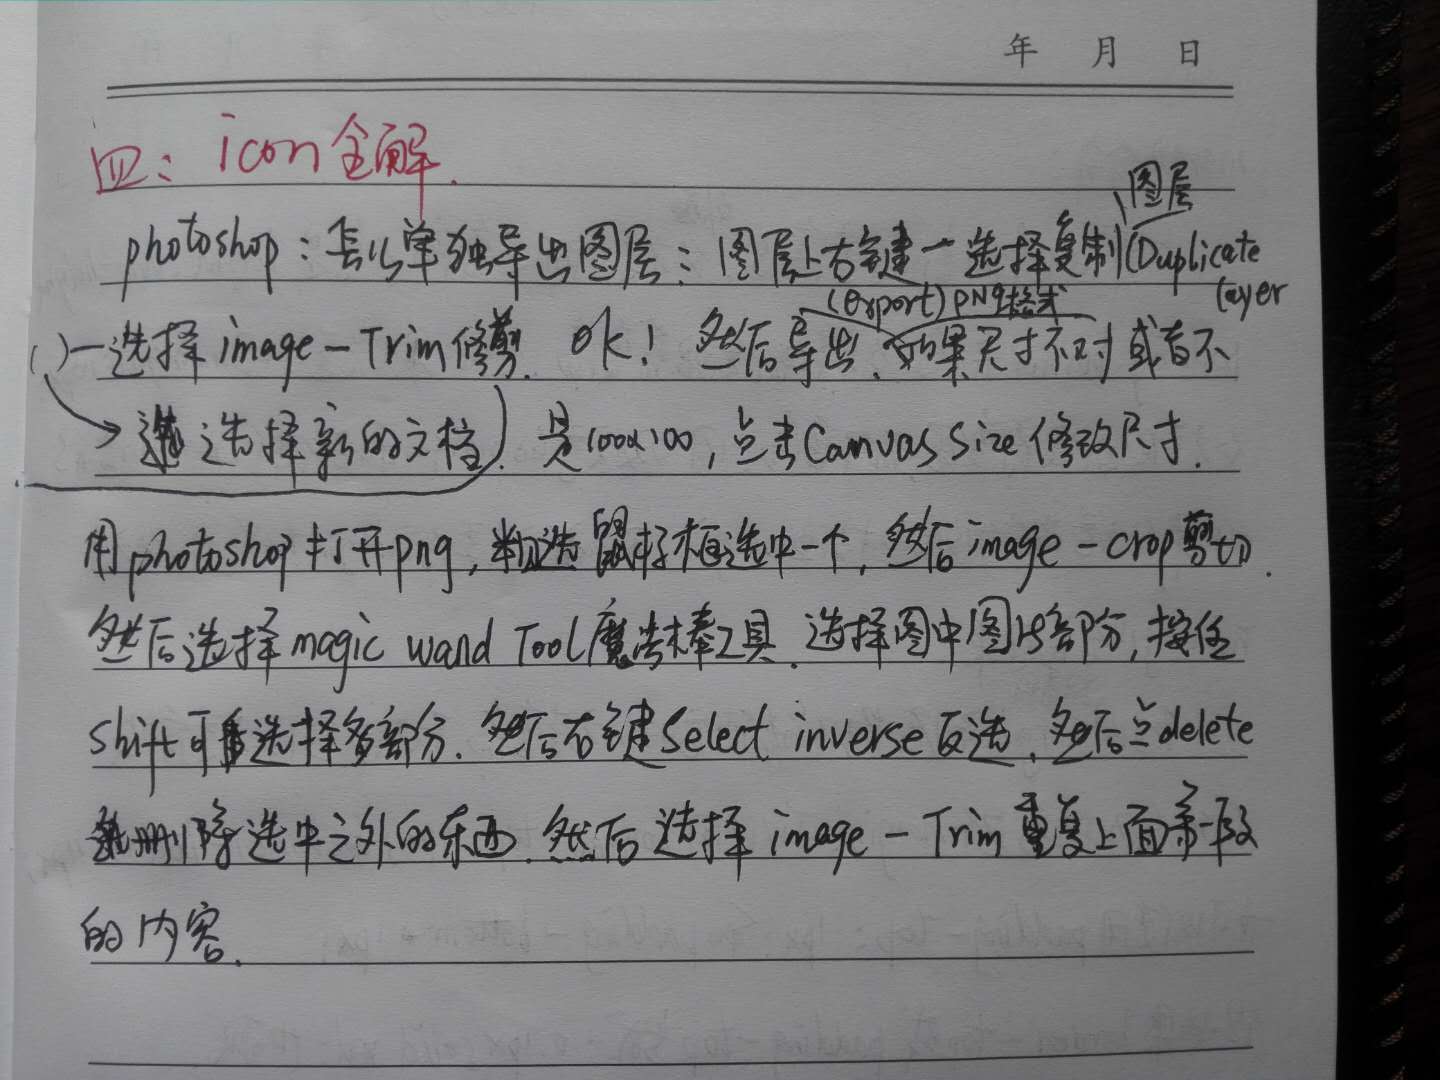 年 月 日
四：icon全解.
图层
photoshop：怎么单独导出图层：图层上右键一选择复制(Duplicate
layer
(export) PNG格式
()一选择image－Trim修剪. ok！ 然后导出.如果尺寸不对或者不
选择新的文档) 是100x100，点击Canvas Size修改尺寸.
用photoshop打开png，鼠标框选中一个，然后image－crop剪切.
然后选择magic wand Tool魔法棒工具.选择图中图标部分，按住
shift可选择多部分.然后右键Select inverse反选，然后点delete
删除选中之外的东西.然后选择image－Trim重复上面第一段
的内容.